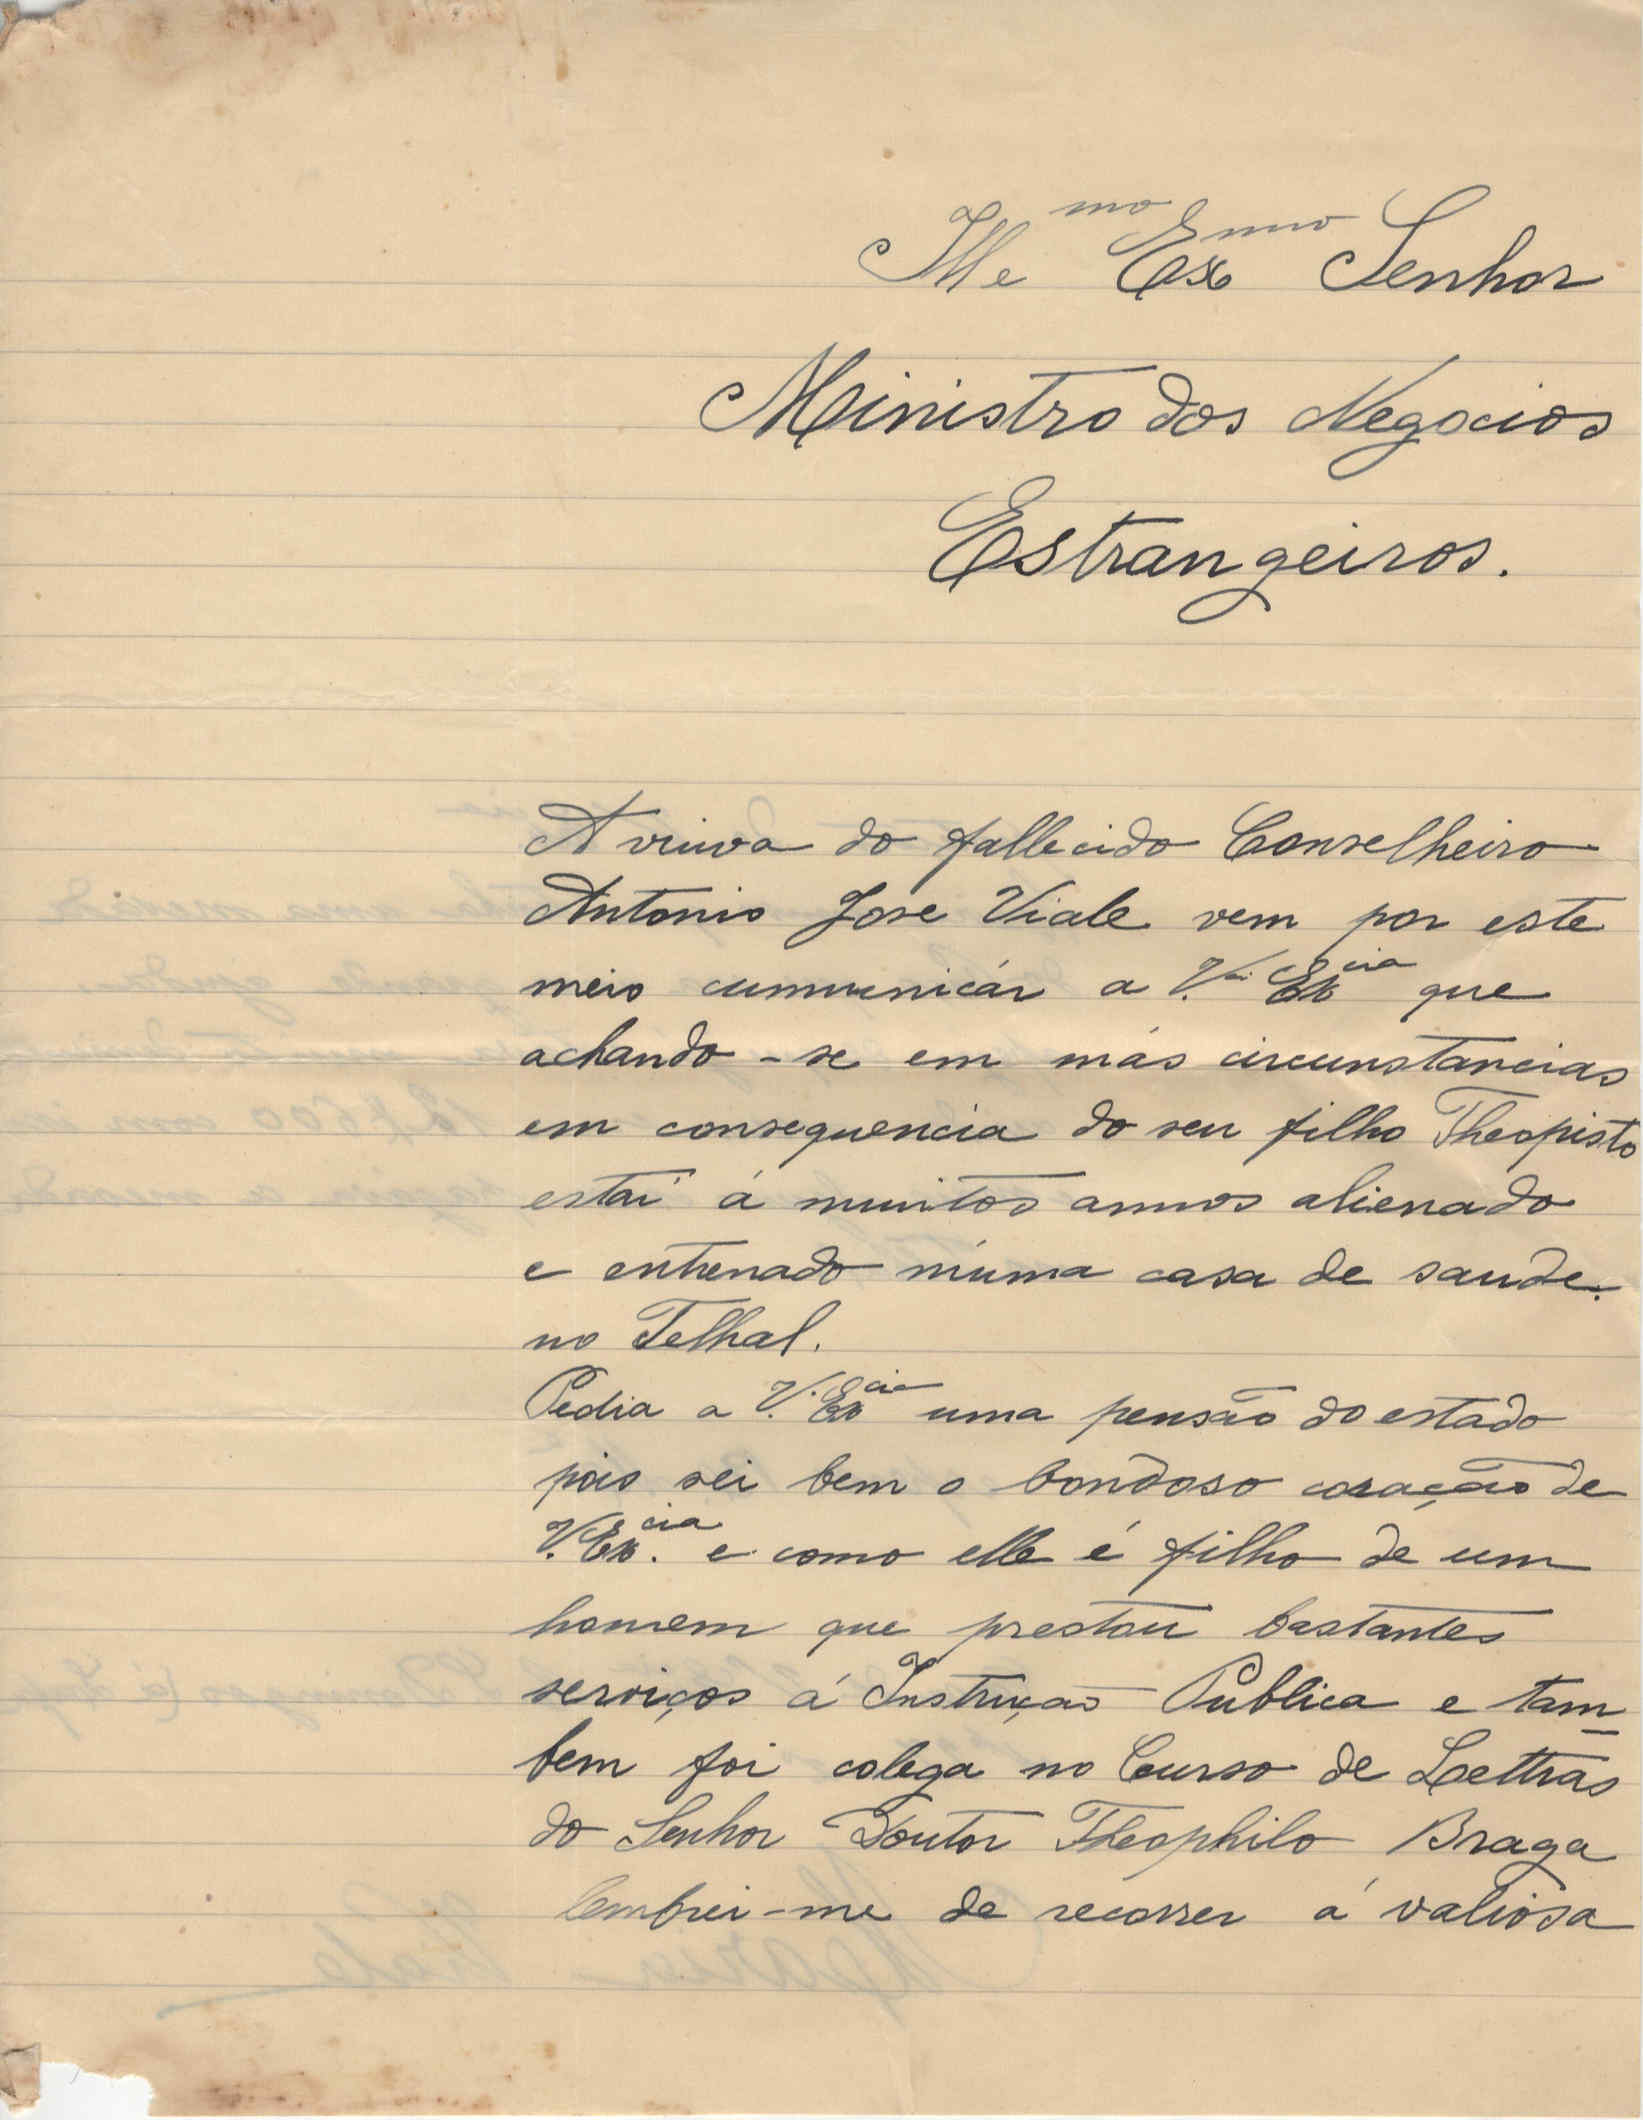 Ille mo Ex mo Senhor
Ministro dos Negocios
Estrangeiros.
A viuva do fallecido Conselheiro
Antonio Jose Viale vem por este
meio cummunicár a V. Ex cia que
achando-se em más circunstancias
em consequencia do seu filho Theopisto
estar á muitos annos alienado
e entrenado n'uma casa de saude.
no Telhal.
Pedia a V. Ex cia uma pensão do estado
pois sei bem o bondoso coração de
V. Ex cia. e como elle é filho de um
homem que prestou bastantes
serviços á Instrução Publica e tam
bem foi colega no Curso de Lettras
do Senhor Doutor Theophilo Braga
lembrei-me de recorrer á valiosa